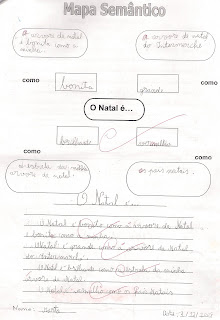 Mapa Semântico
a árvore de natal
é bonita como a
minha.
a árvore de natal
do Intermarche
como
como
bonito
grande
O Natal é...
brilhante
vermelho
como
como
minha
árvore de natal.
os pais natais.
O Natal é...
O Natal é bonito como a árvore de Natal
é bonita como a minha.
O Natal é grande como a árvore de Natal
do Intermarche.
O Natal é brilhante como a minha
árvore de Natal.
O Natal é vermelho como os Pais Natais
Nome:
Data: